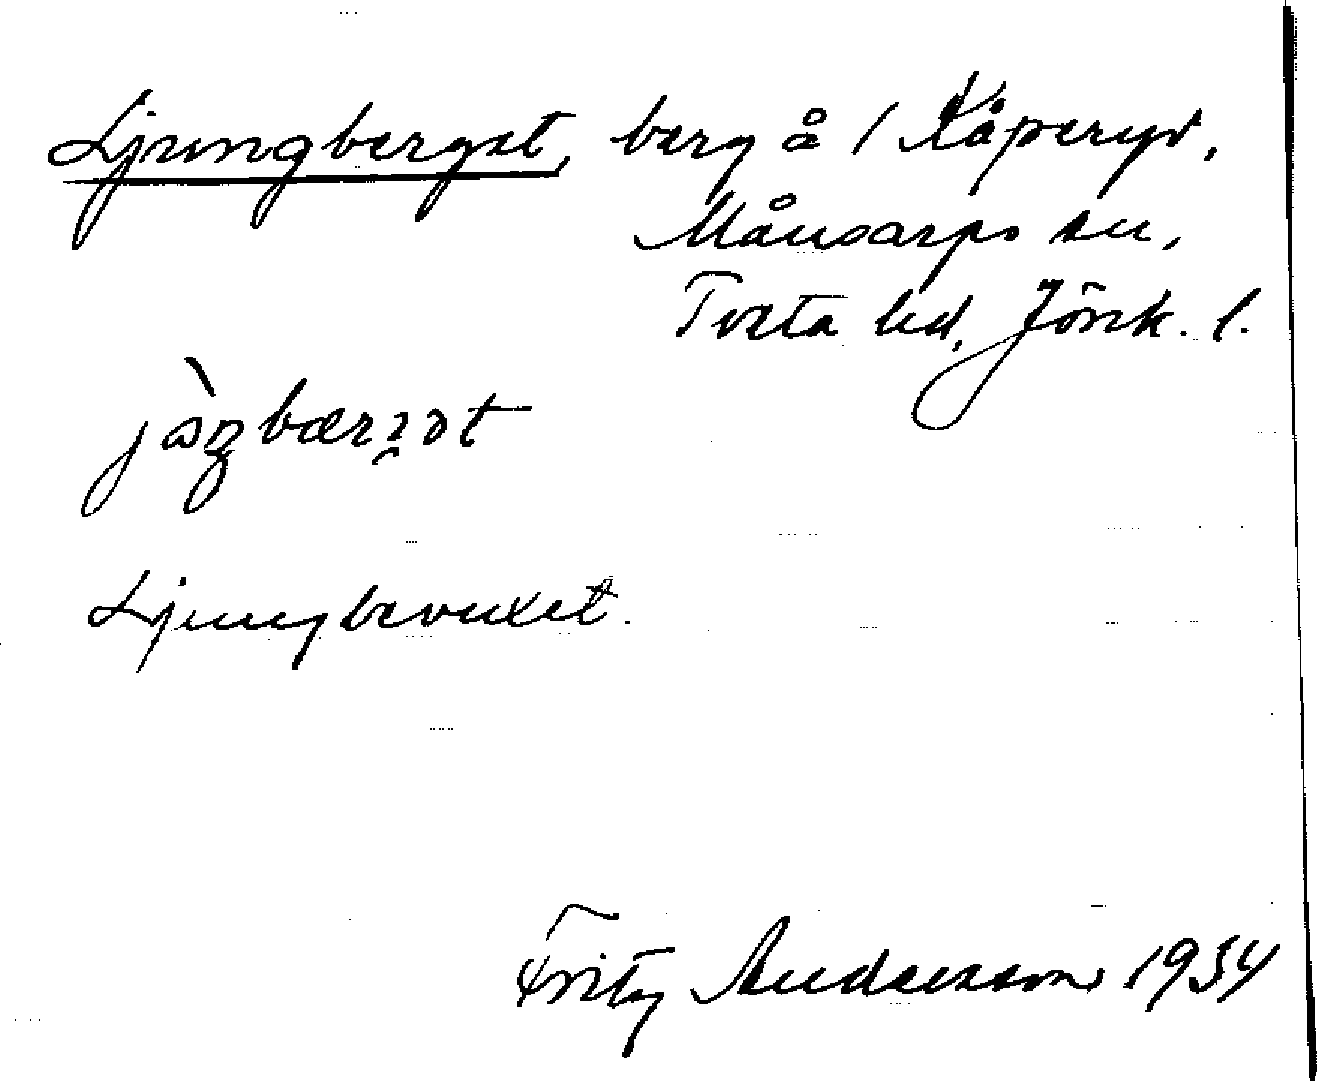 Ljungberget, berg å / Kåperyd,
Månsarps sn,
Tveta hd, Jönk. l.
Ljungbevuxet.
Fritz Andersson 1934